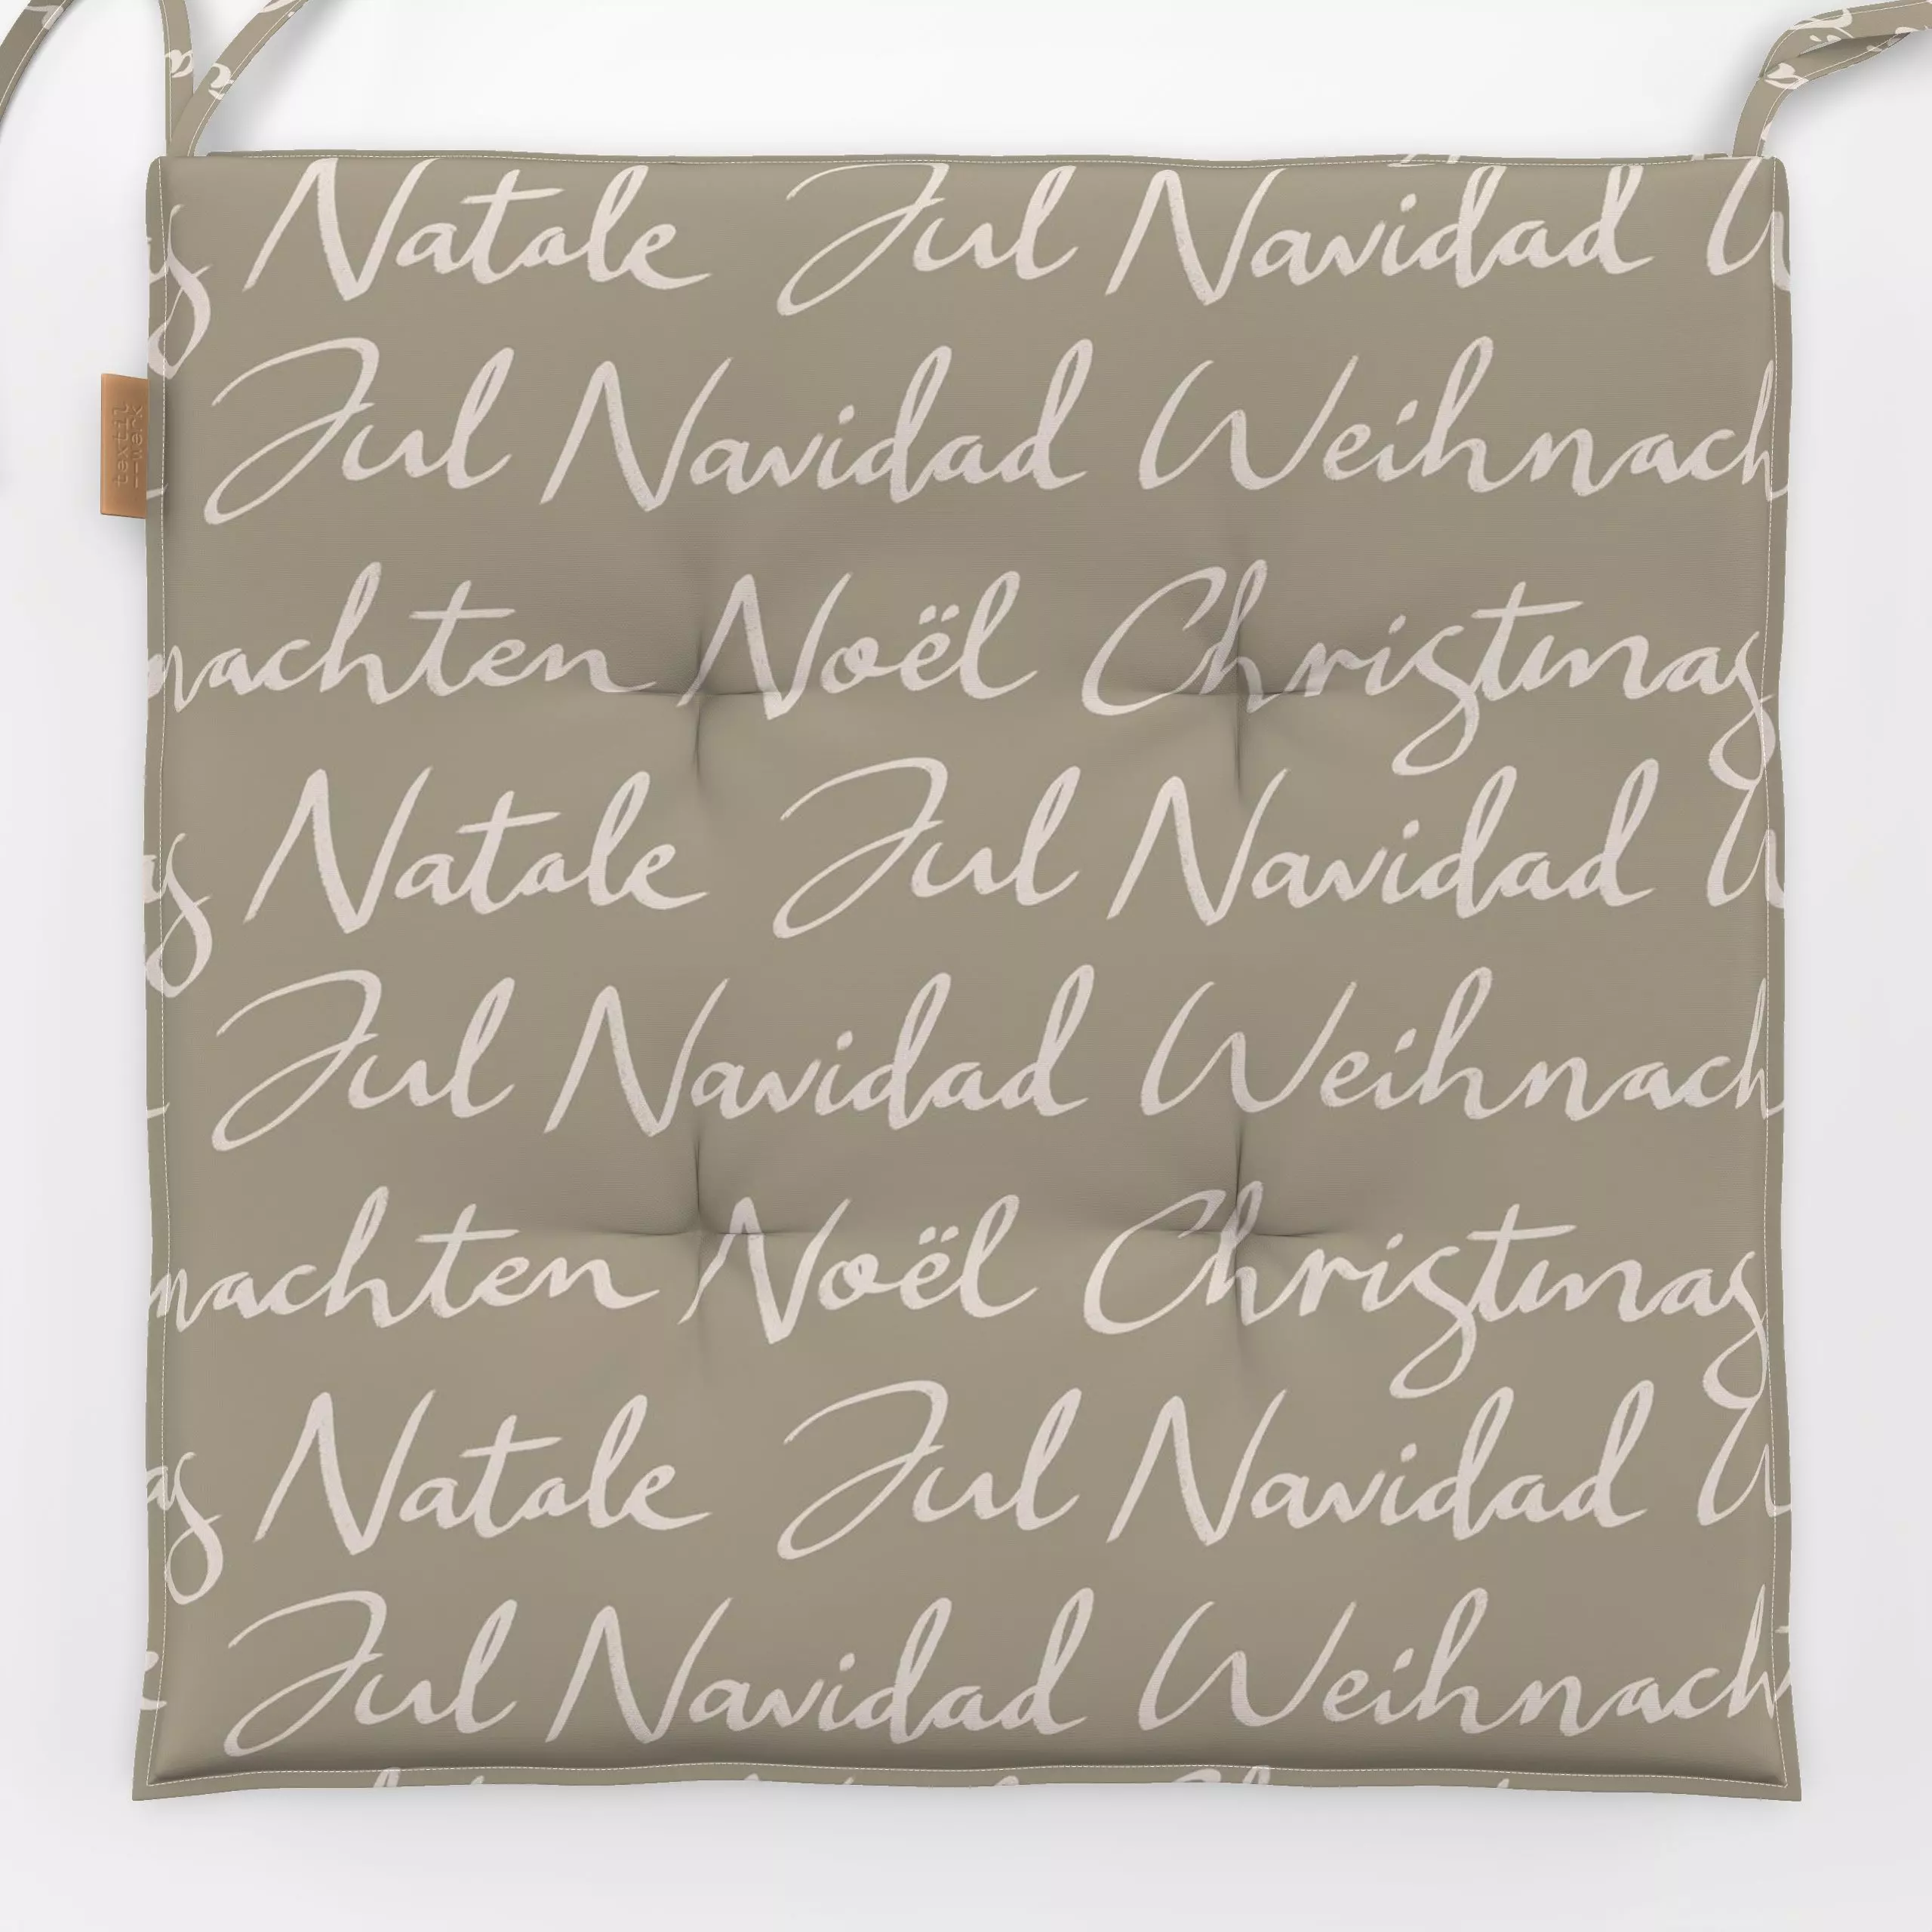 Natale Jul Navidad W
Jul Navidad Weihnach
textil
--werk
nachten Noël Christmas
as Natale Jul Navidad W
Jul Navidad Weihnach
nachten Noël Christmas
as Natale Jul Navidad W
Jul Navidad Weihnach